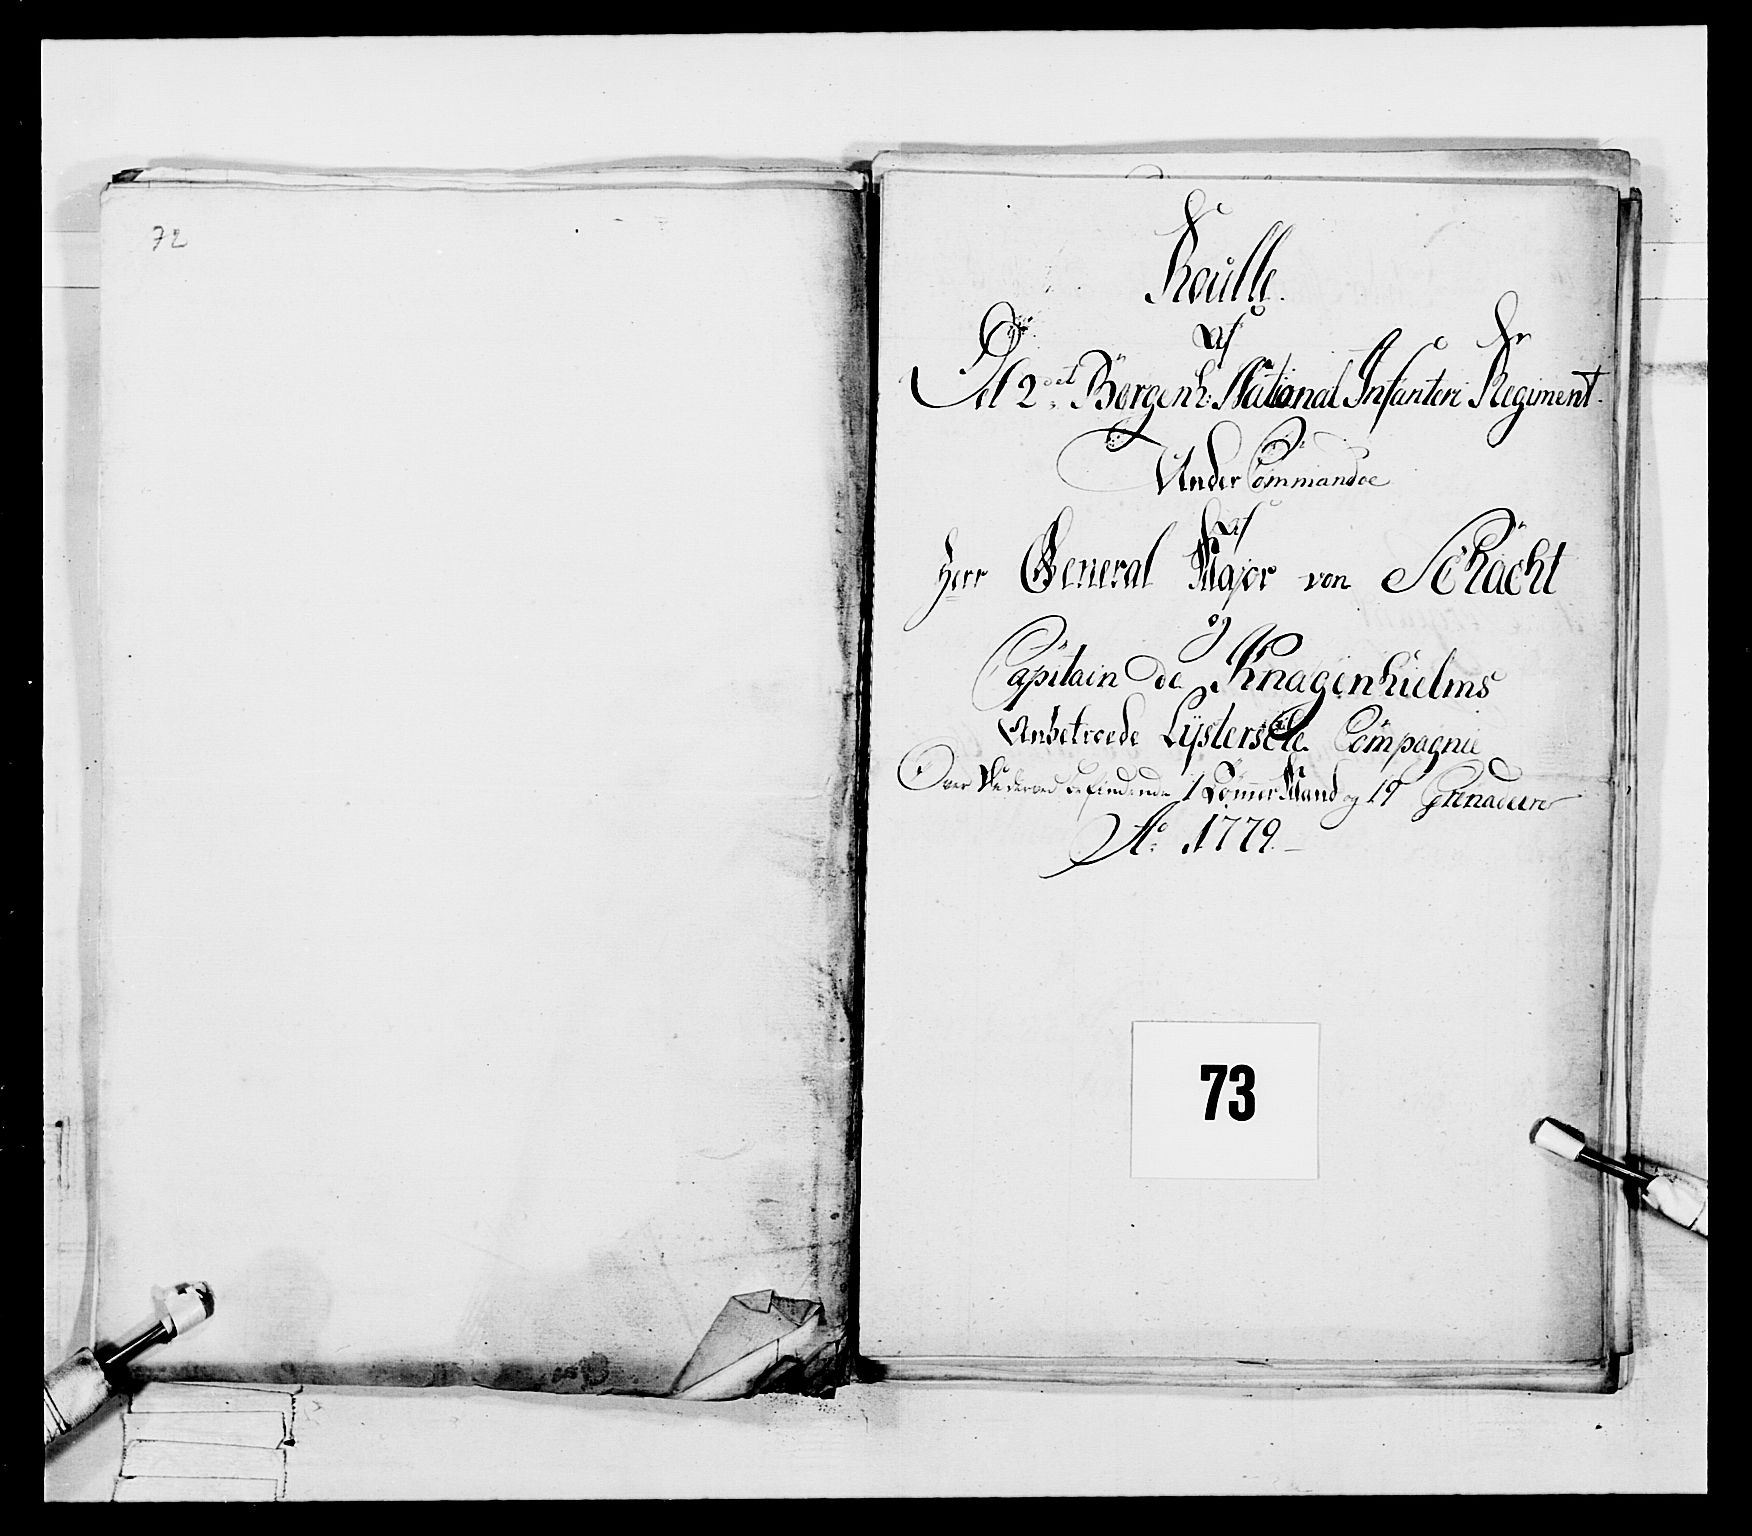 72
Roulle
af
Det 2det Bergenh: National Infanteri Regiment
Under Commandoe
af
Herr General Major von Schacht
og
Capitain de Knagenhielms
Anbetroede Lÿsterske Compagnie
Over Vederved befindende 1 Tømmer Mand og 19 Grenadeerer
Ao 1779.
73